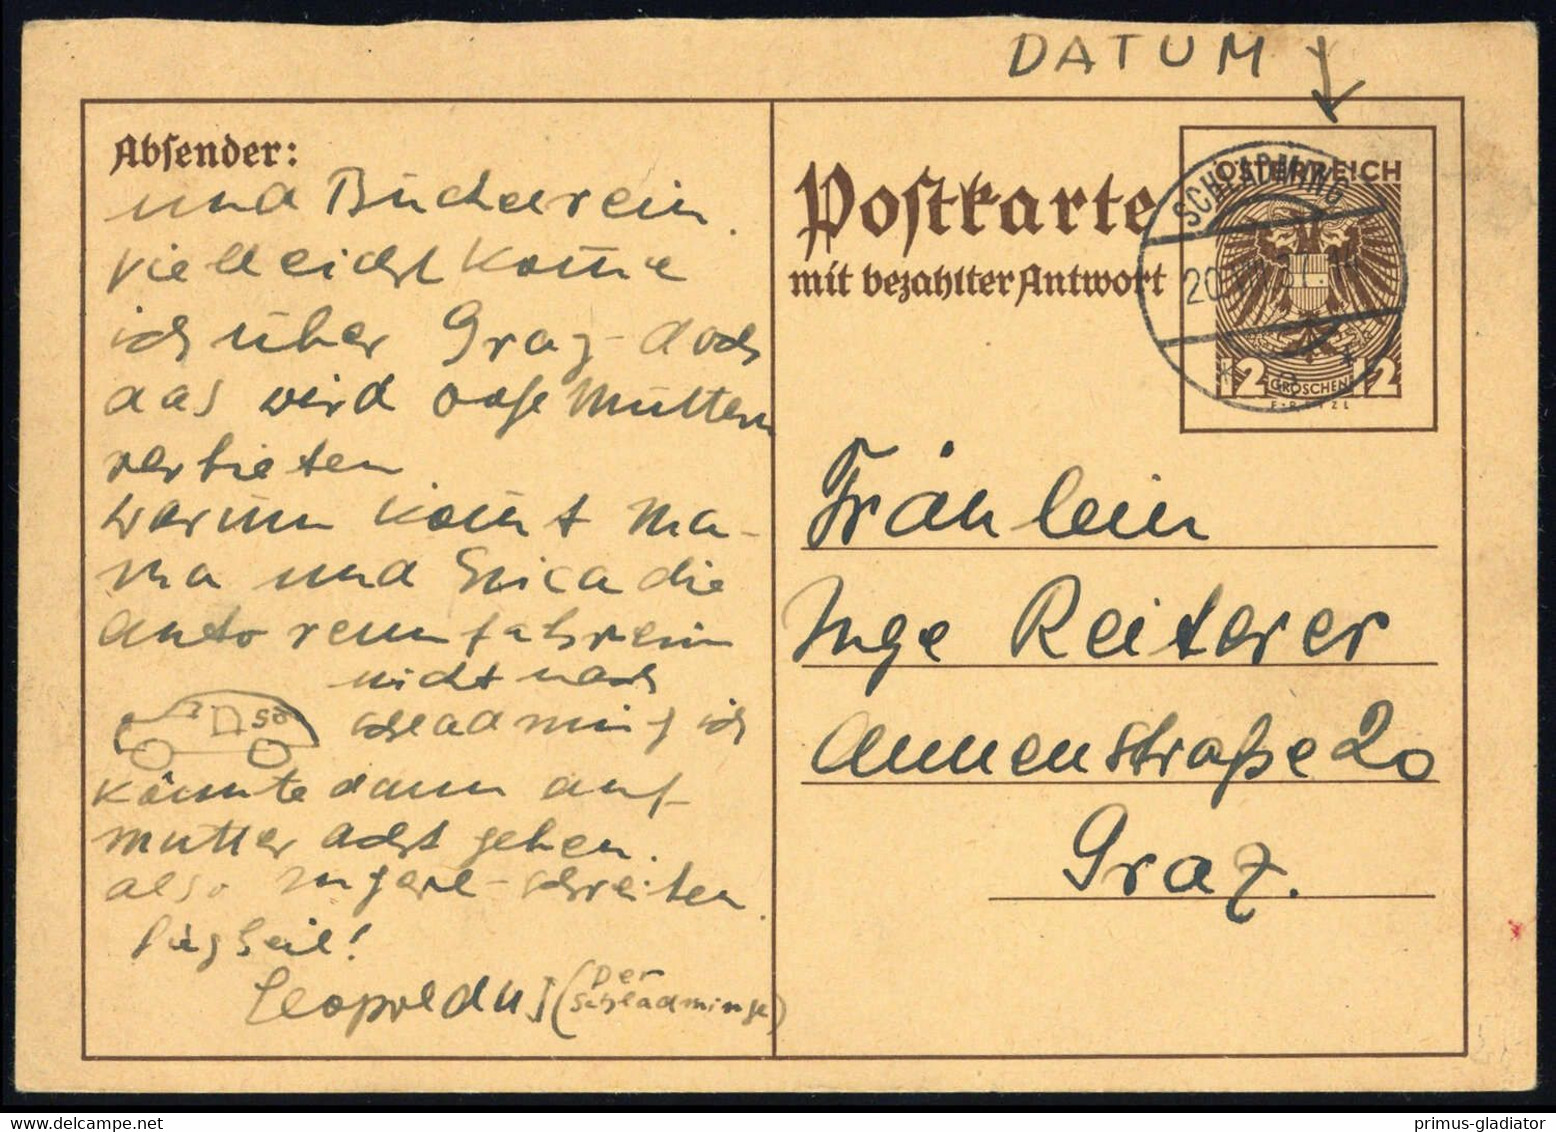 DATUM
Absender:
und Bücherein.
vielleicht kom̄e
ich über Graz - doch
das wird Muttern
verbieten
warum kom̄t Ma-
ma und Erica die
Autorennfahrerin
nicht nach
Schladming ich
könnte dann auf
Mutter acht geben.
also schreiben.
Schiheil!
Leopoldus (Der
Schladminger)
Postkarte
mit bezahlter Antwort
ÖSTERREICH
SCHLADMING
12 GROSCHEN 12
Fräulein
Inge Reiterer
Annenstraße 20
Graz.
primus-gladiator